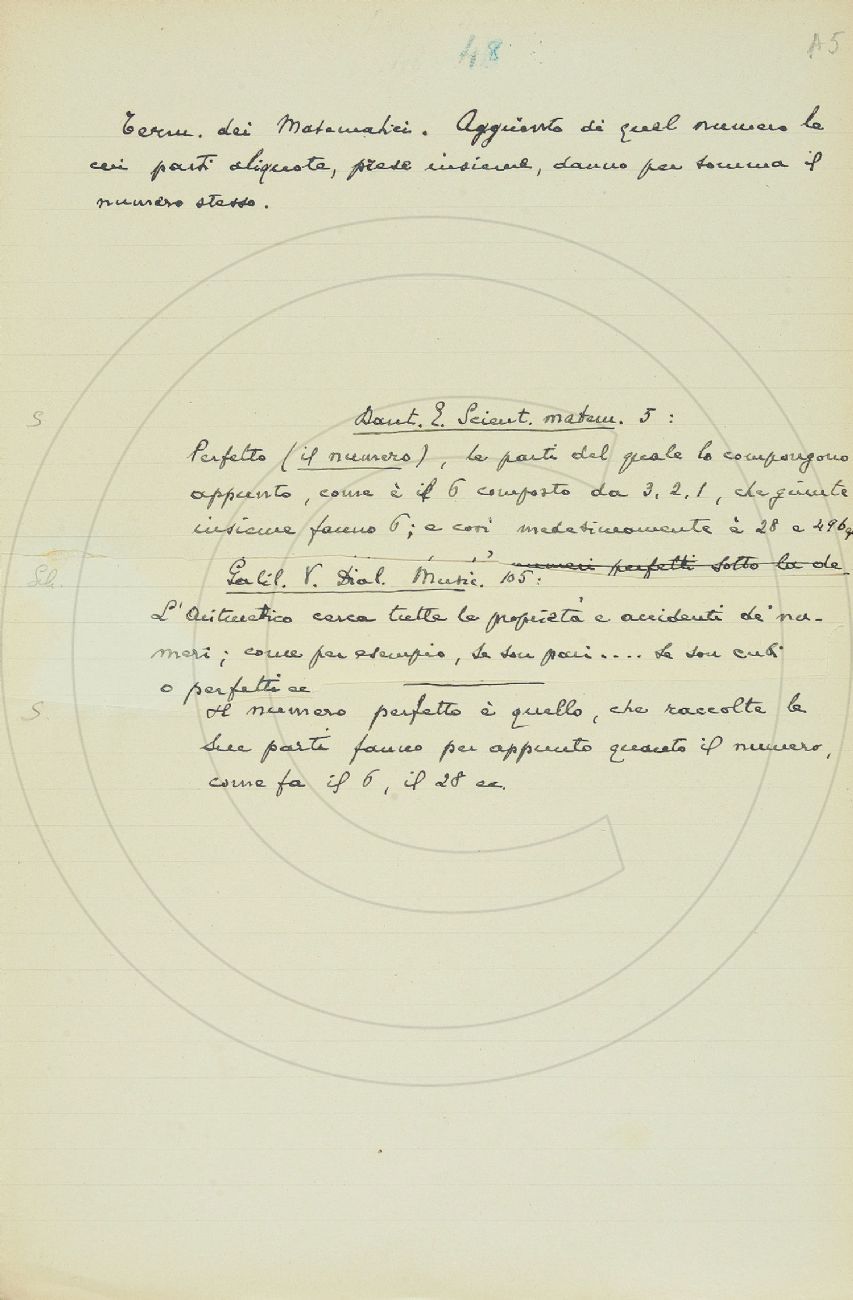 48
A5
Term. dei Matematici. Aggiunto di quel numero le
cui parti aliquote, prese insieme, danno per somma il
numero stesso.
S
Dant. E. Scient. matem. 5 :
Perfetto (il numero), le parti del quale lo compongono
appunto, come è il 6 composto da 3, 2, 1, che giunte
insieme fanno 6; e così medesimamente è 28 e 496
numeri perfetti sotto la de-
Galil. V. Dial. Music. 105:
L'Aritmetico cerca tutte le proprietà e accidenti de' nu-
meri; come per esempio, se son pari.... se son cubi
o perfetti ec
S
Il numero perfetto è quello, che raccolte le
sue parti fanno per appunto quanto il numero,
come fa il 6, il 28 ec.